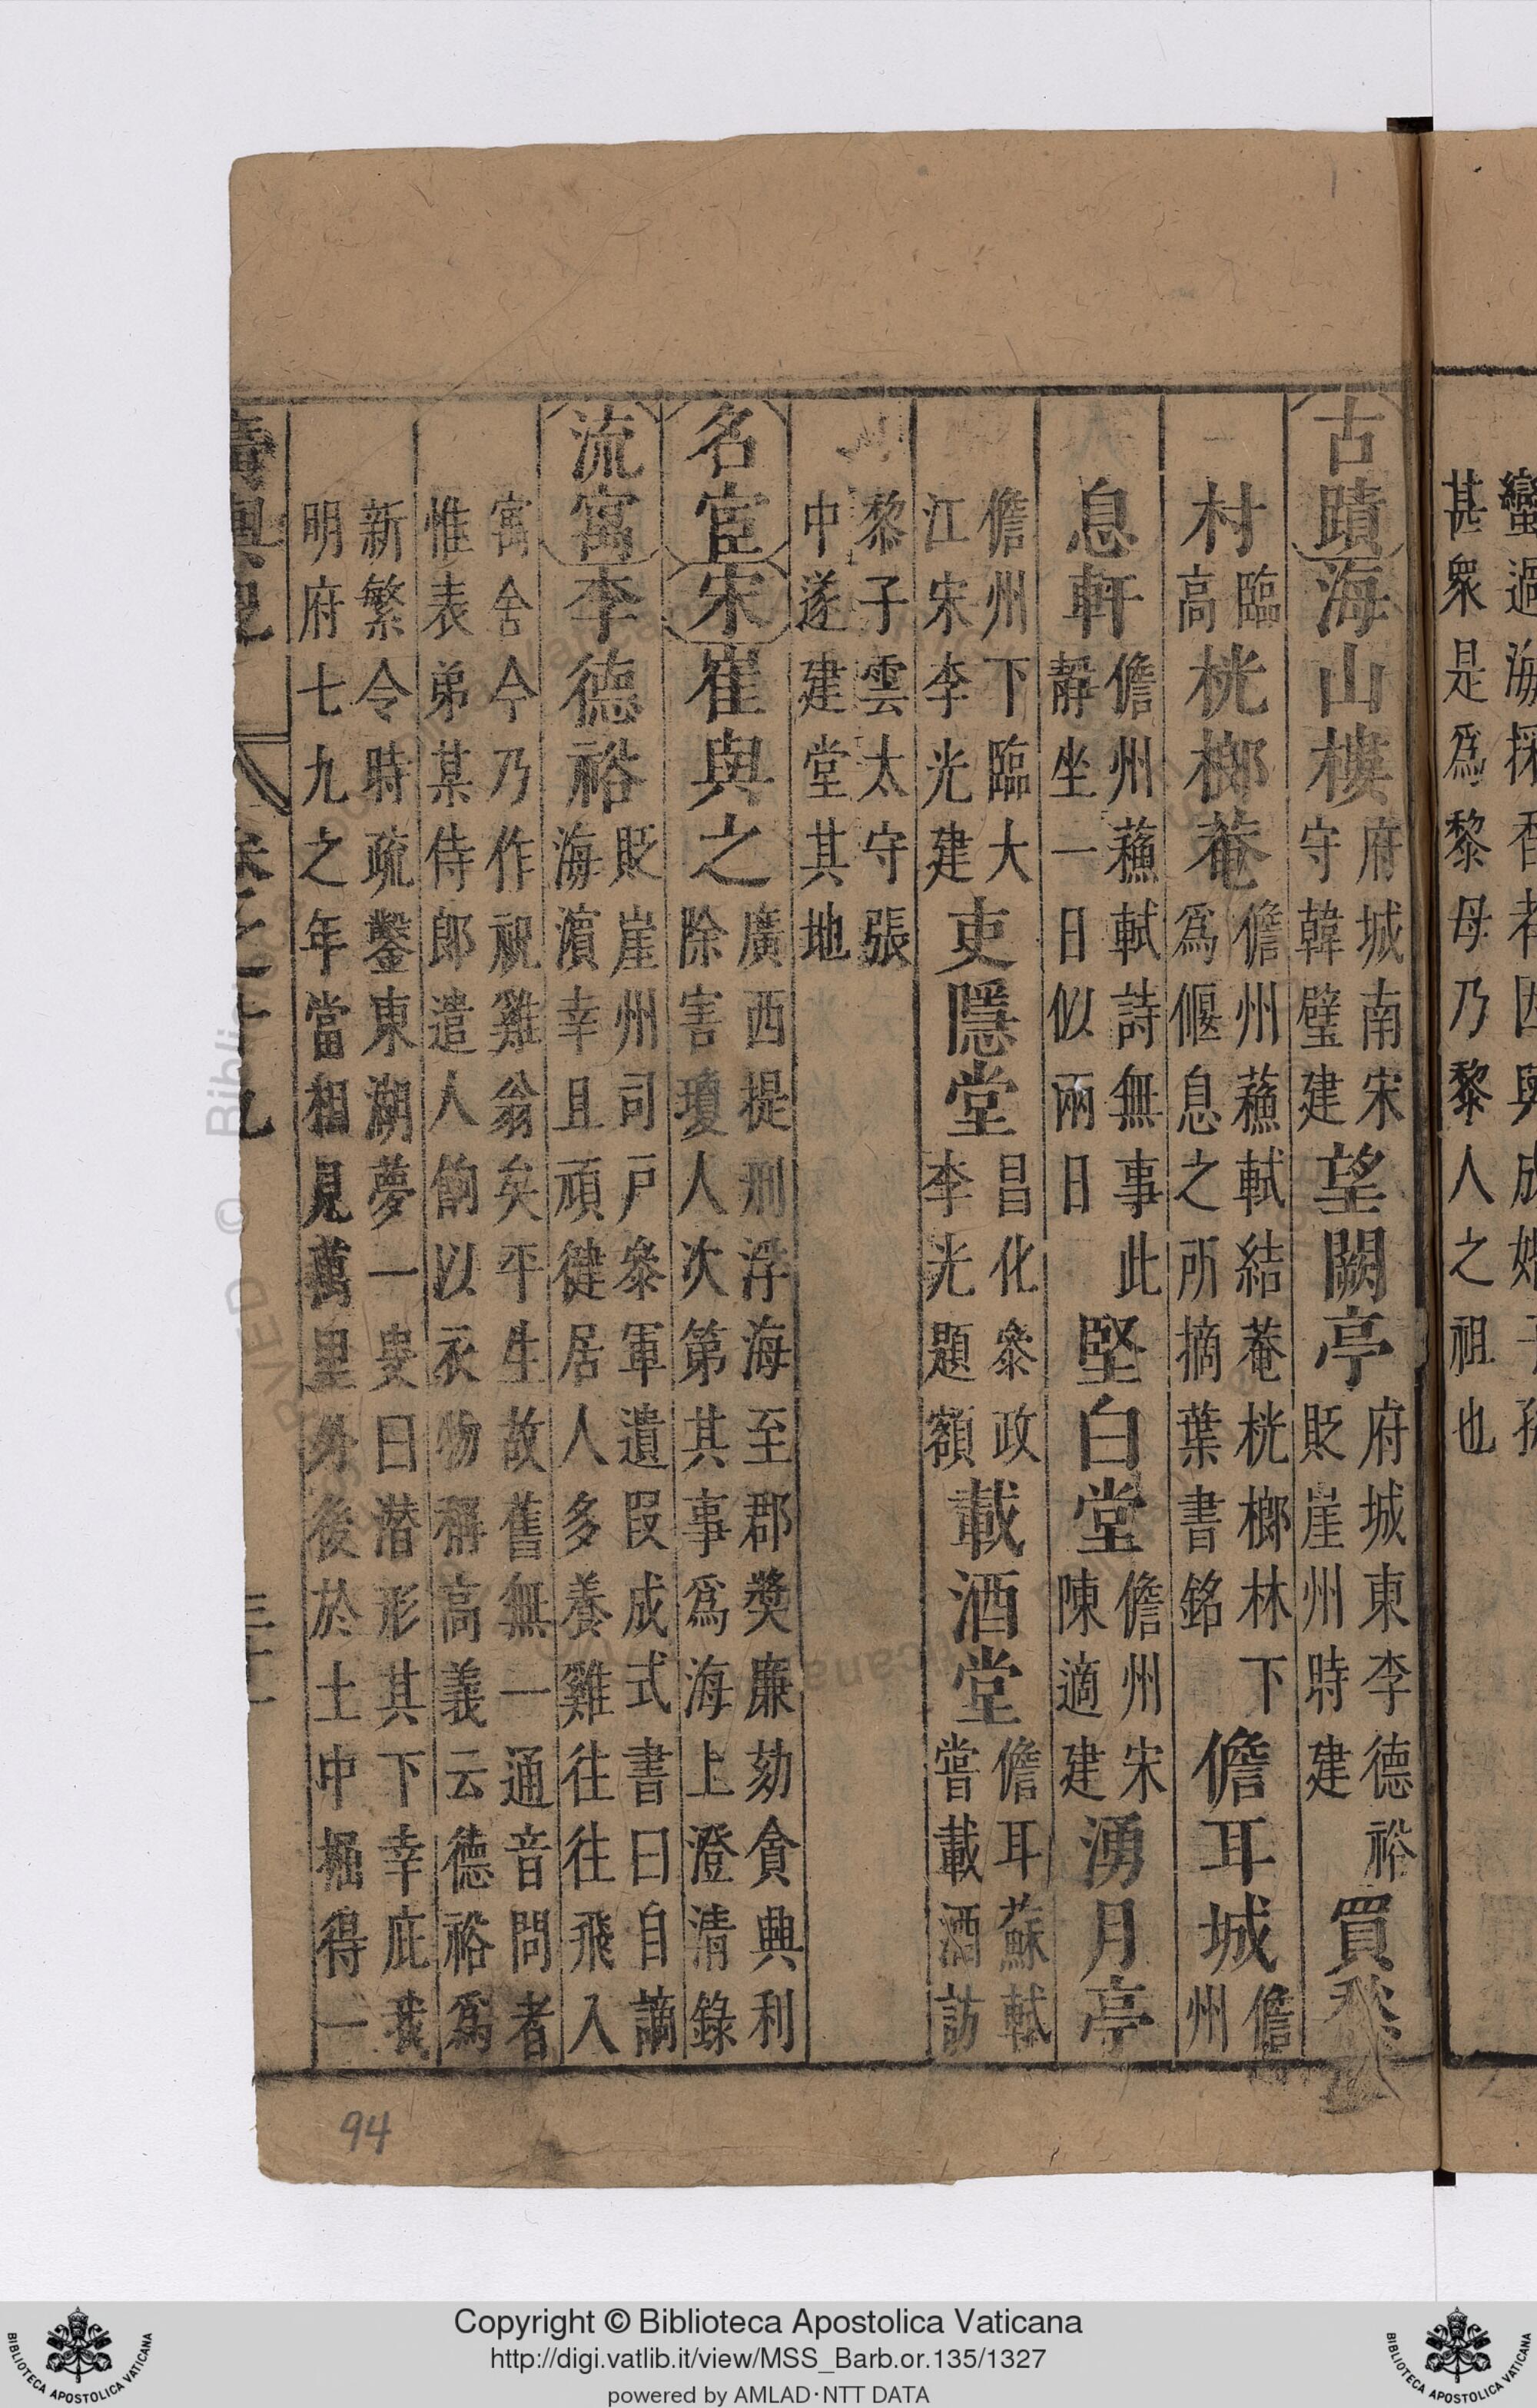 蠻過海採香者因與成婚子孫
甚衆是爲黎母乃黎人之祖也
古蹟海山樓府城南宋守韓璧建望闕亭府城東李德裕貶崖州時建買愁
村臨高桄榔菴儋州蘇軾結菴桄榔林下爲偃息之所摘葉書銘儋耳城儋州
息軒儋州蘇軾詩無事此靜坐一日似兩日堅白堂儋州宋陳適建湧月亭
儋州下臨大江宋李光建吏隱堂昌化叅政李光題額載酒堂儋耳蘇軾嘗載酒訪
黎子雲太守張中遂建堂其地
名宦宋崔與之廣西提刑浮海至郡奬廉劾貪興利除害瓊人次第其事爲海上澄清錄
流寓李德裕貶崖州司戸叅軍遺段成式書曰自謫海濱幸且頑健居人多養雞往往飛入
寓舍今乃作祝雞翁矣平生故舊無一通音問者惟表弟某侍郎遣人餉以衣物稱高義云德裕爲
新繁令時疏鑿東湖夢一叟曰潛形其下幸庇我明府七九之年當相見萬里外後於土中極得一
廣輿記
卷之十九
三十一
94
Copyright © Biblioteca Apostolica Vaticana
http://digi.vatlib.it/view/MSS_Barb.or.135/1327
powered by AMLAD·NTT DATA
BIBLIOTECA APOSTOLICA VATICANA
BIBLIOTECA APOSTOLICA VATICANA